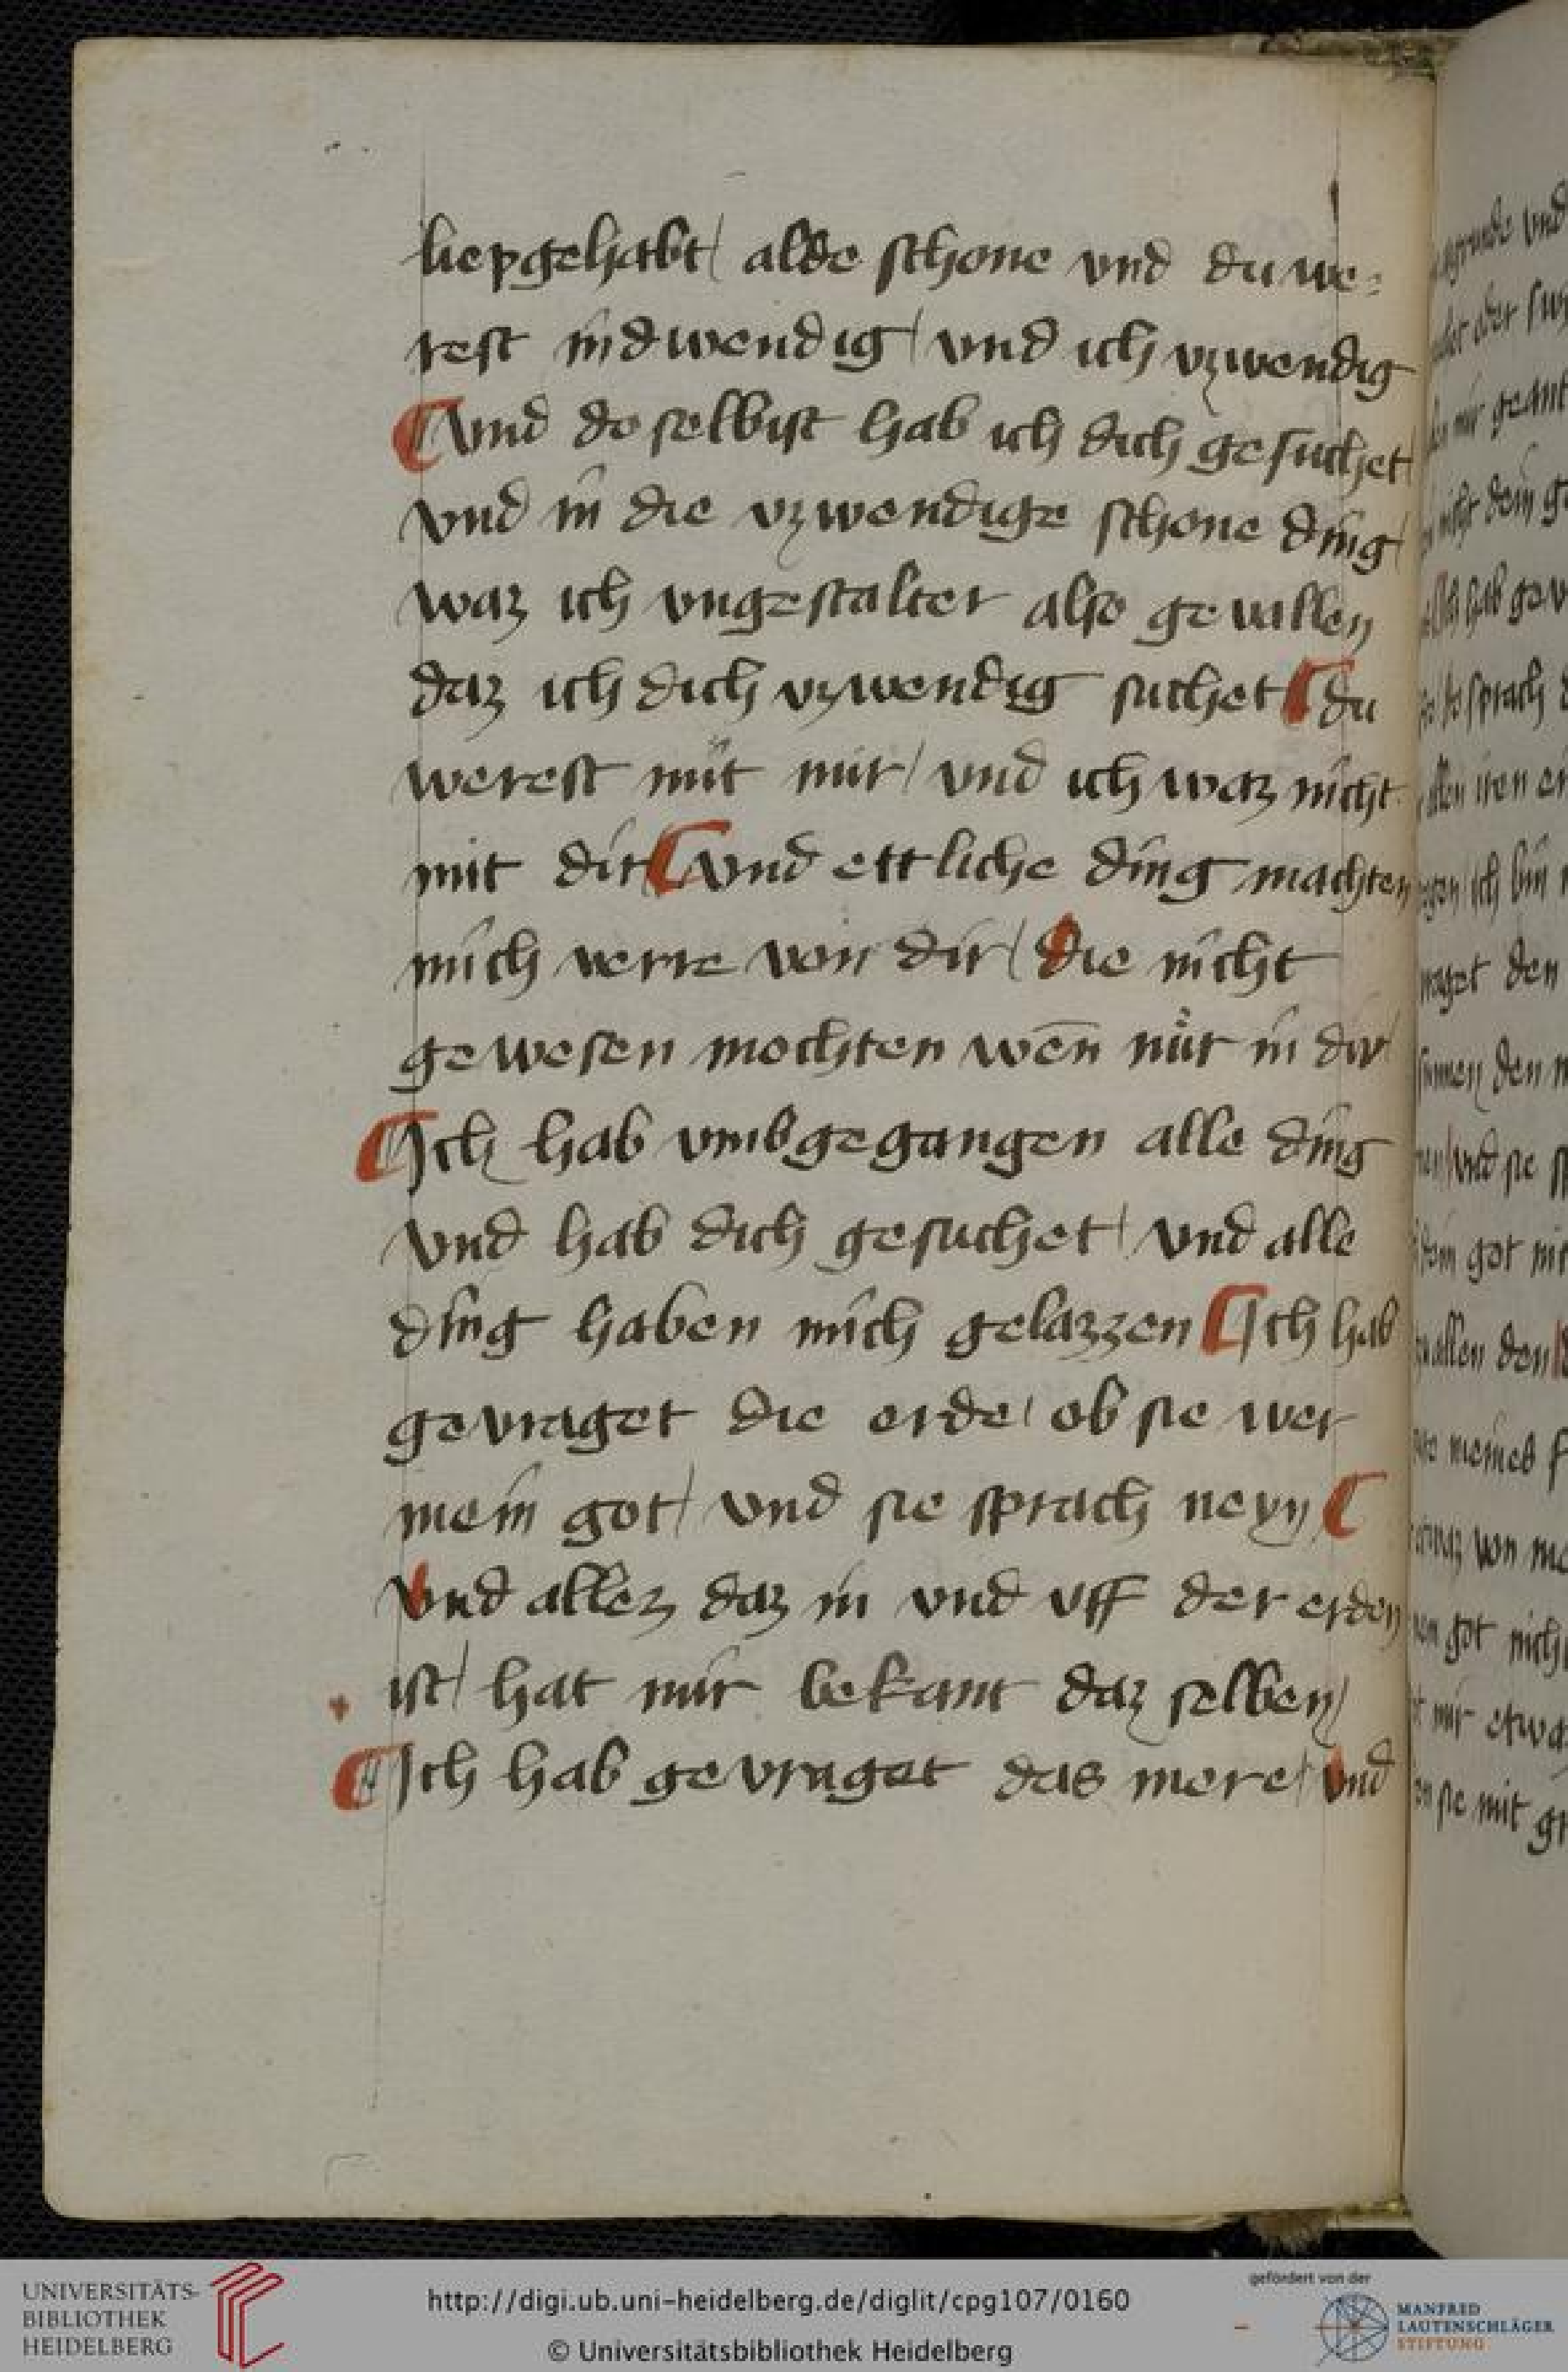 liepgehabt / alde schone vnd du we=
rest indwendig / vnd ich vzwendig
¶ Vnd do selbist hab ich dich gesuchet /
vnd in die vzwendige schone ding /
waz ich vngestalter also geuallen
daz ich dich vzwendig suchet ¶ du
werest mit mir / vnd ich waz nicht
mit dir ¶ vnd ettliche ding machten
mich verre von dir / die nicht
gewesen mochten wēn nür in dir /
¶ Ich hab vmbgegangen alle ding
vnd hab dich gesuchet / vnd alle
ding haben mich gelazzen ¶ Ich hab
gevraget die erde / ob sie wer
mein got / vnd sie sprach neyn ¶
vnd allez daz in vnd vff der erden
ist / hat mir bekant daz selben /
¶ Ich hab gevraget das mere / vnd
UNIVERSITÄTS-
BIBLIOTHEK
HEIDELBERG
http://digi.ub.uni-heidelberg.de/diglit/cpg107/0160
© Universitätsbibliothek Heidelberg
gefördert von der
MANFRED
LAUTENSCHLÄGER
STIFTUNG